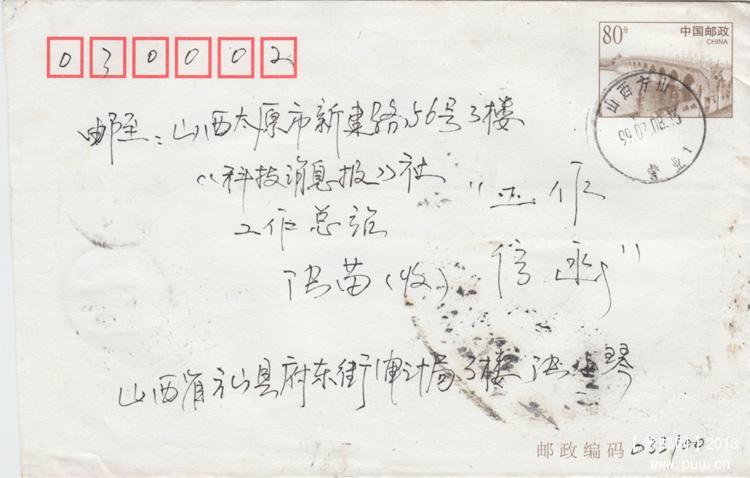 030002
80分
中国邮政
CHINA
山西方山
99.07.08.15
营业1
邮至:山西太原市新建路56号3楼
《科技消息报》社
工作总站
张苗(收)
"工作
信函"
山西省方山县府东街审计局3楼
邮政编码 033100
2013
www.puu.cn